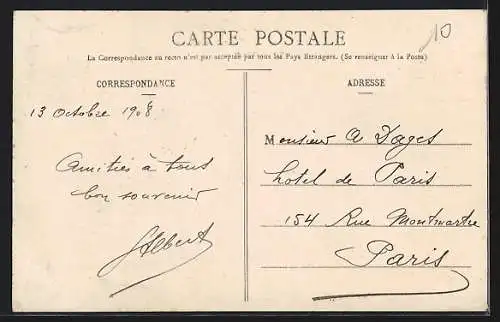 10
CARTE POSTALE
La Correspondance au recto n'est pas acceptée par tous les Pays Etrangers. (Se renseigner à la Poste)
CORRESPONDANCE
ADRESSE
13 Octobre 1908
Amitiés à tous
bon souvenir
Albert
Monsieur A
hotel de Paris
154 Rue Montmartre
Paris